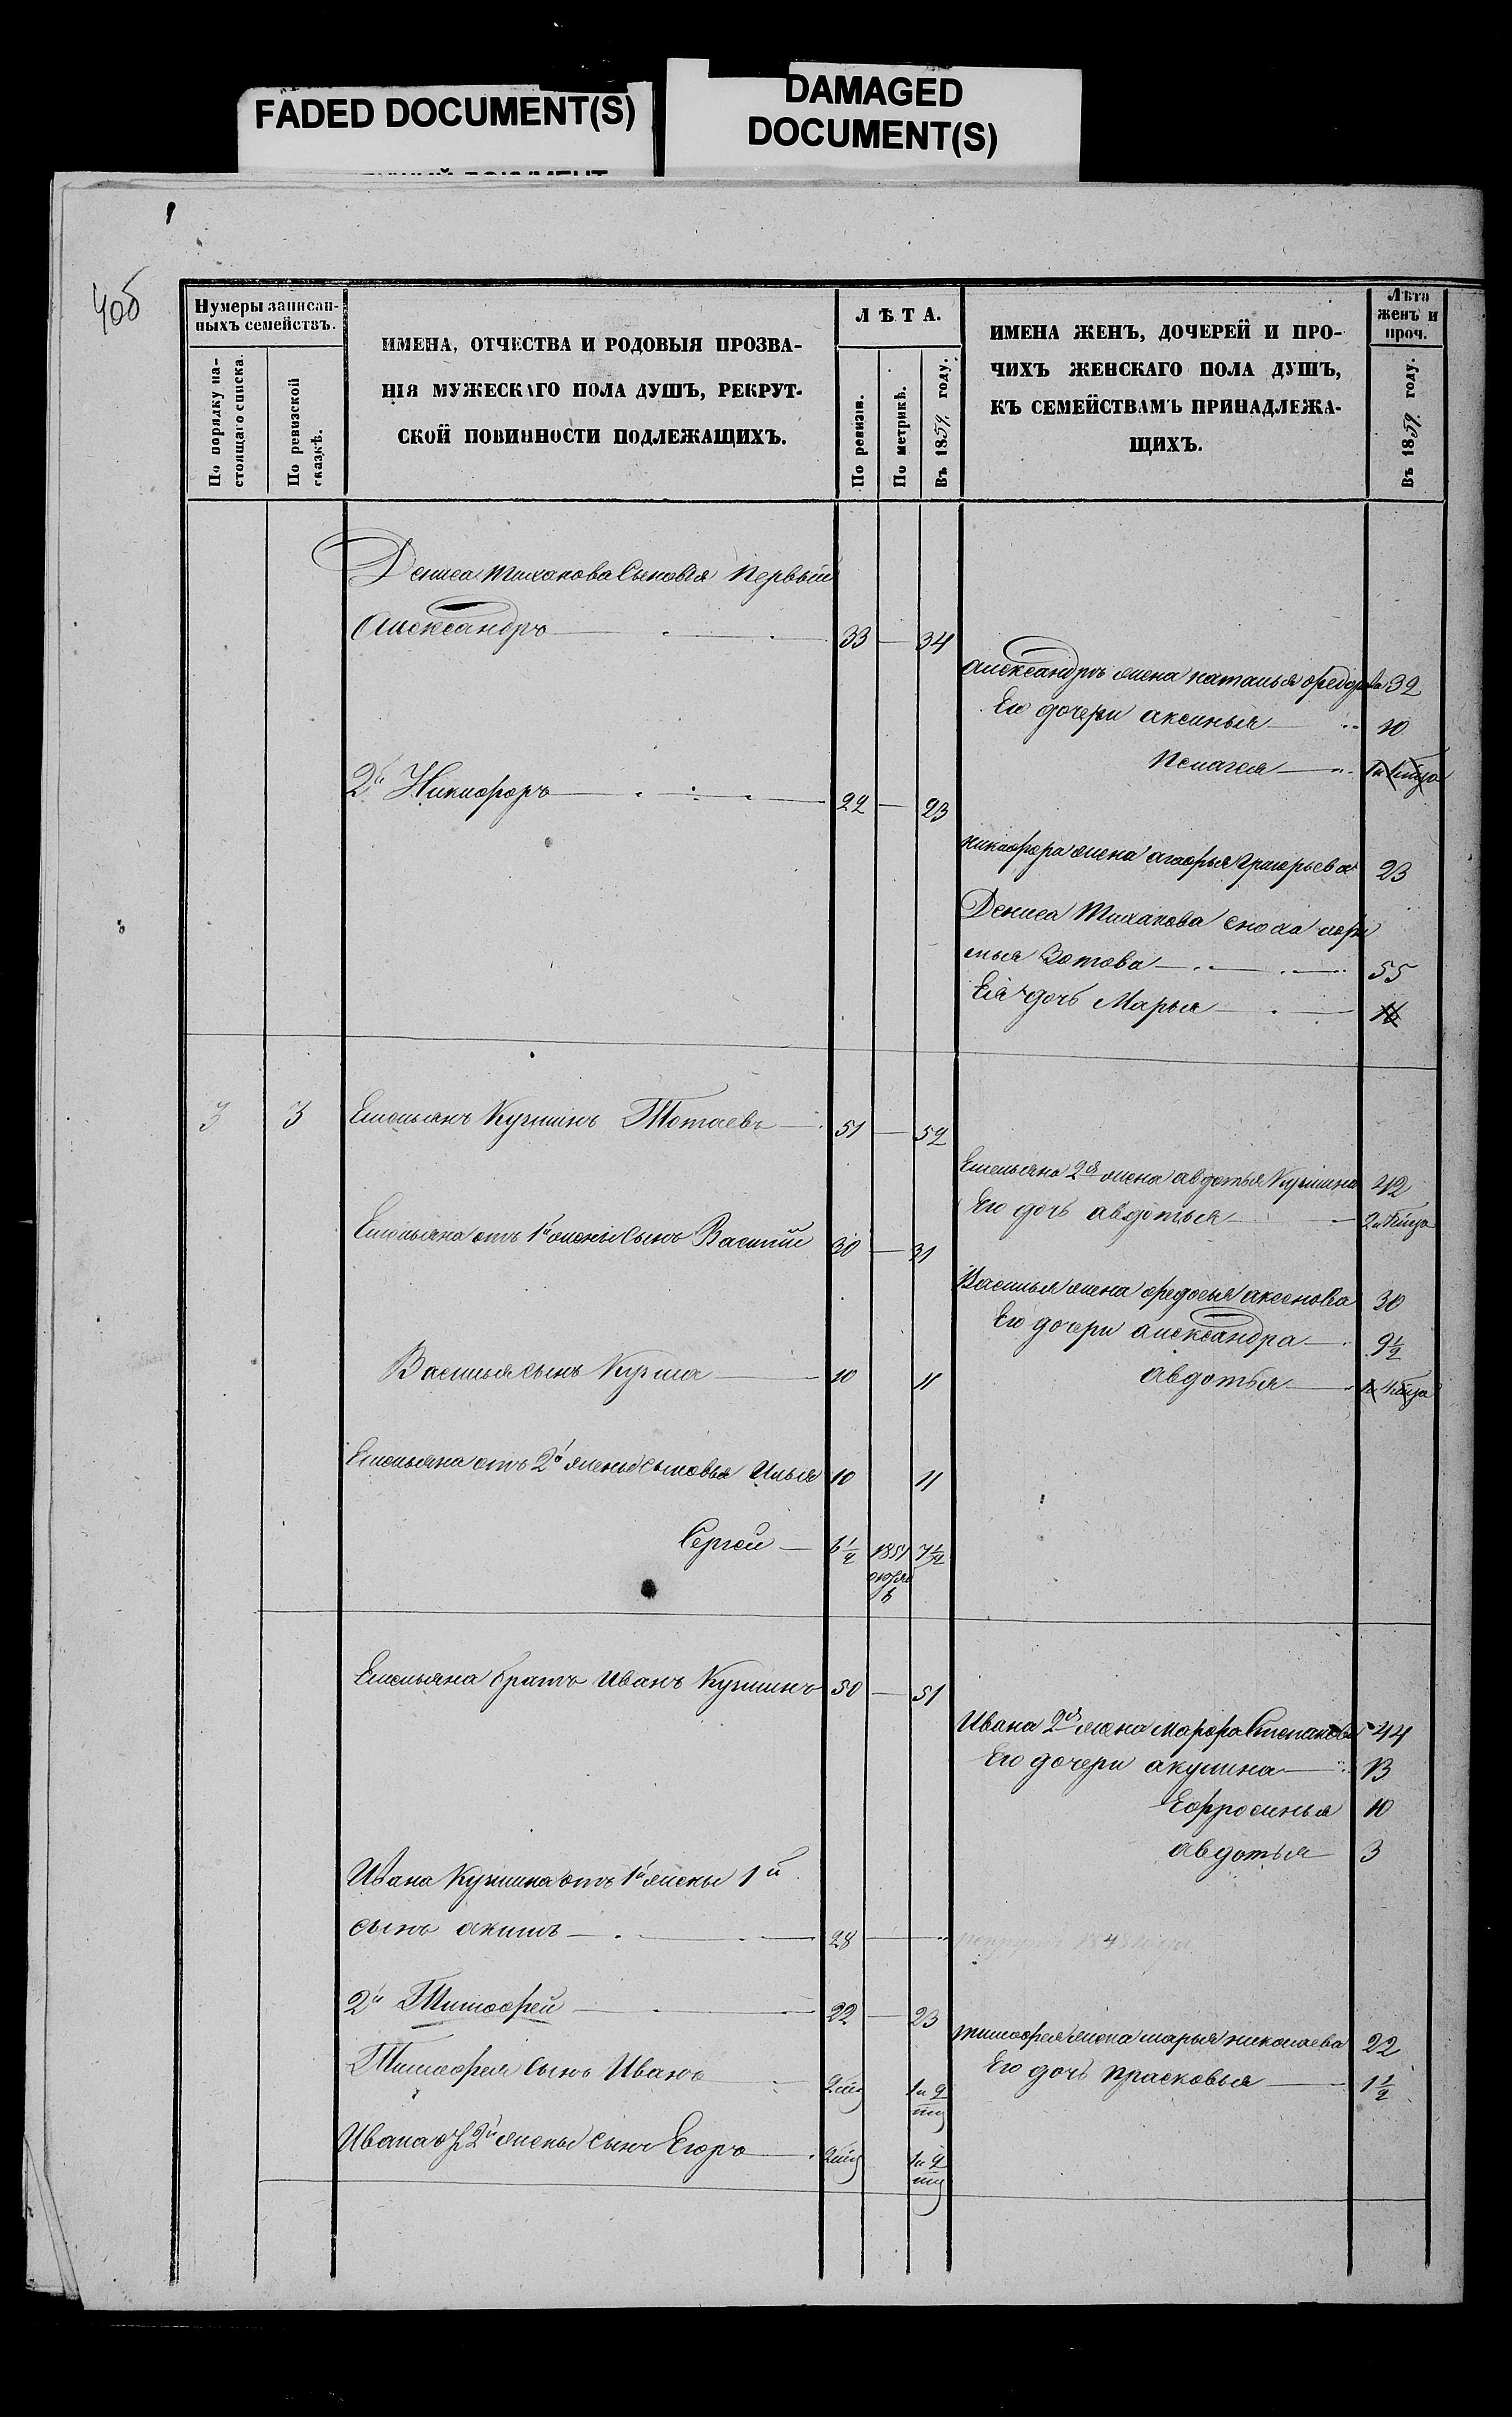 FADED DOCUMENT(S)
DAMAGED
DOCUMENT(S)
40б
Нумеры записан-
ныхъ семействъ.
По порядку на-
стоящаго списка.
По ревизской
сказкѣ.
ИМЕНА, ОТЧЕСТВА И РОДОВЫЯ ПРОЗВА-
НІЯ МУЖЕСКАГО ПОЛА ДУШЪ, РЕКРУТ-
СКОЙ ПОВИННОСТИ ПОДЛЕЖАЩИХЪ.
ЛѢТА.
По ревизіи.
По метрикѣ.
Въ 1859 году.
ИМЕНА ЖЕНЪ, ДОЧЕРЕЙ И ПРО-
ЧИХЪ ЖЕНСКАГО ПОЛА ДУШЪ,
КЪ СЕМЕЙСТВАМЪ ПРИНАДЛЕЖА-
ЩИХЪ.
Лѣта
женъ и
проч.
Въ 1859 году.
Дениса Тиханова Сыновья Первый
Александръ 33 34
Александръ жена наталья федорова 32
Его дочери аксинья 10
Пелагея
2й Никифоръ 22 23
никифора жена агафья Григорьева 23
Дениса Тиханова сноха
Зотова 55
Ея дочь Марья
3 3 Емельянъ Кузминъ 51 52
Емельяна 2я жена авдотья Кузмина 42
Его дочь авдотья
Емельяна отъ 1й жены сынъ Василий 30 31
Василья жена федосья аксенова 30
Его дочери александра 9 1/2
Василья сынъ Кузма 10 11
авдотья
Емельяна отъ 2й жены сыновья Илья 10 11
Сергей 6 1/2 1851 7 1/2
6
Емельяна братъ Иванъ Кузминъ 50 51
Ивана 2я жена марфа Степанова 44
Его дочери акулина 13
Ефросинья 10
авдотья 3
Ивана Кузмина отъ 1й жены 1й
сынъ акимъ 28
2й Тимофей 22 23
тимофея жена марья николаева 22
Тимофея сынъ Иванъ
Его дочь прасковья 1 1/2
Ивана отъ 2й жены сынъ Егоръ